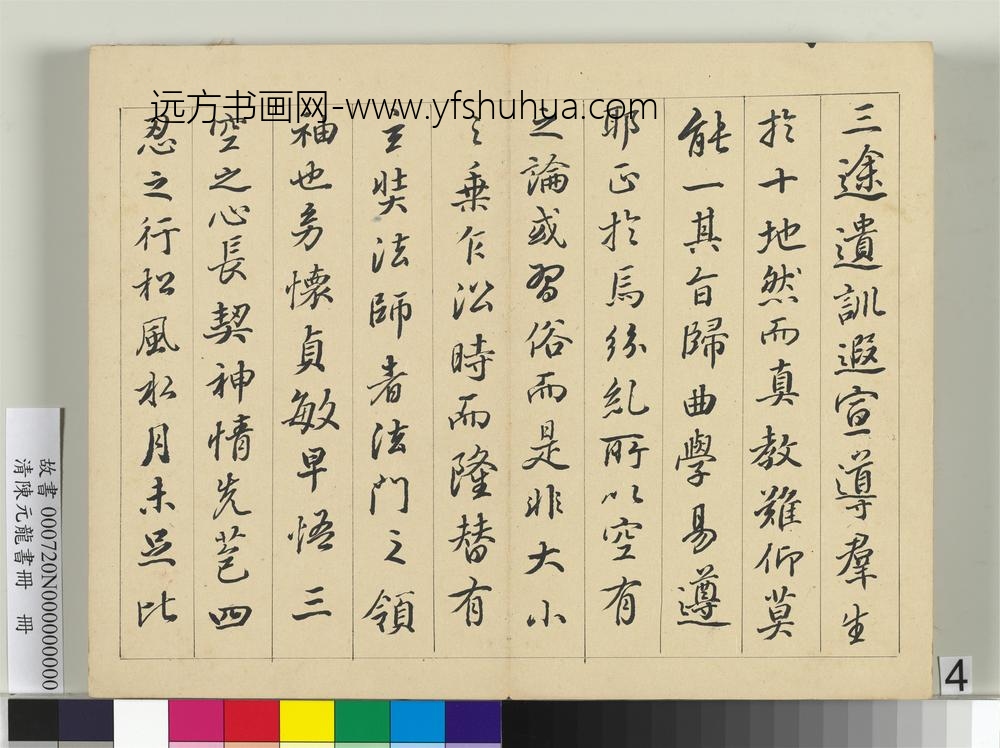 远方书画网-www.yfshuhua.com
三途遺訓遐宣導羣生
於十地然而真教難仰莫
能一其旨歸曲學易遵
耶正於焉紛乱所以空有
之論或習俗而是非大小
之乗乍沿時而隆替有
玄奘法師者法門之領
袖也㓜懷貞敏早悟三
空之心長契神情先苞四
忍之行松風水月未足比
故書 000720N000000000
清陳元龍書冊 冊
4